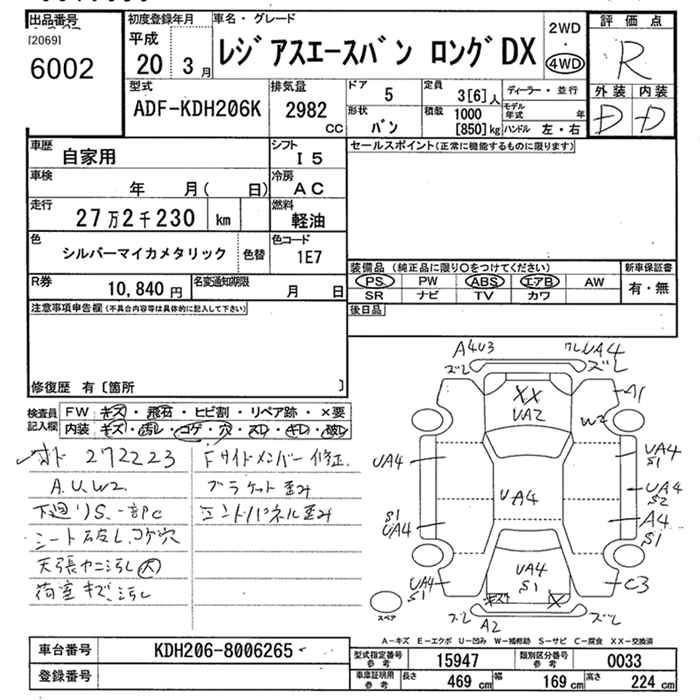 出品番号
[2069]
6002
初度登録年月
平成
20 3月
車名・グレード
レジアスエースバン ロングDX
2WD
・
4WD
評価点
R
外装 内装
D D
型式
ADF-KDH206K
排気量
2982
CC
ドア
5
形状
バン
定員
3[6]人
積載
1000
[850]kg
ディーラー・並行
モデル年式 年
ハンドル 左・右
車歴
自家用
シフト
I5
車検
年 月( 日)
冷房
AC
走行
27万2千230 km
燃料
軽油
色
シルバーマイカメタリック
色替
色コード
1E7
R券
10,840円
名変通知期限
月 日
セールスポイント(正常に機能するものに限ります)
装備品(純正品に限り○をつけてください)
PS PW ABS エアB AW
SR ナビ TV カワ
新車保証書
有・無
後日品
注意事項申告欄(不具合内容等は具体的に記入して下さい)
修復歴 有[箇所 ]
検査員
記入欄
FW キズ・飛石・ヒビ割・リペア跡・×要
内装 キズ・汚レ・コゲ・穴・スレ・キレ・破レ
272223
A.U.W2
下廻りS.一部C
シート破レ.コゲ穴
天張ヤニ汚レ大
荷室キズ、汚レ
Fサイドメンバー修正.
ブラケット歪み
エンドパネル歪み
A4U3
ズレ
ワレUA4
ズレ
A1
W2
XX
UA2
UA4
UA4
S1
UA4
UA4
S2
S1
UA4
A4
S1
UA4
S1
UA4
S1
キズ
X
C3
ズレ
A2
ズレ
スペア
A-キズ E-エクボ U-凹み W-補修跡 S-サビ C-腐食 XX-交換済
車台番号
KDH206-8006265
登録番号
型式指定番号
参考
15947
類別区分番号
参考
0033
車庫証明用
参考
長さ 469cm 幅 169cm 高さ 224cm